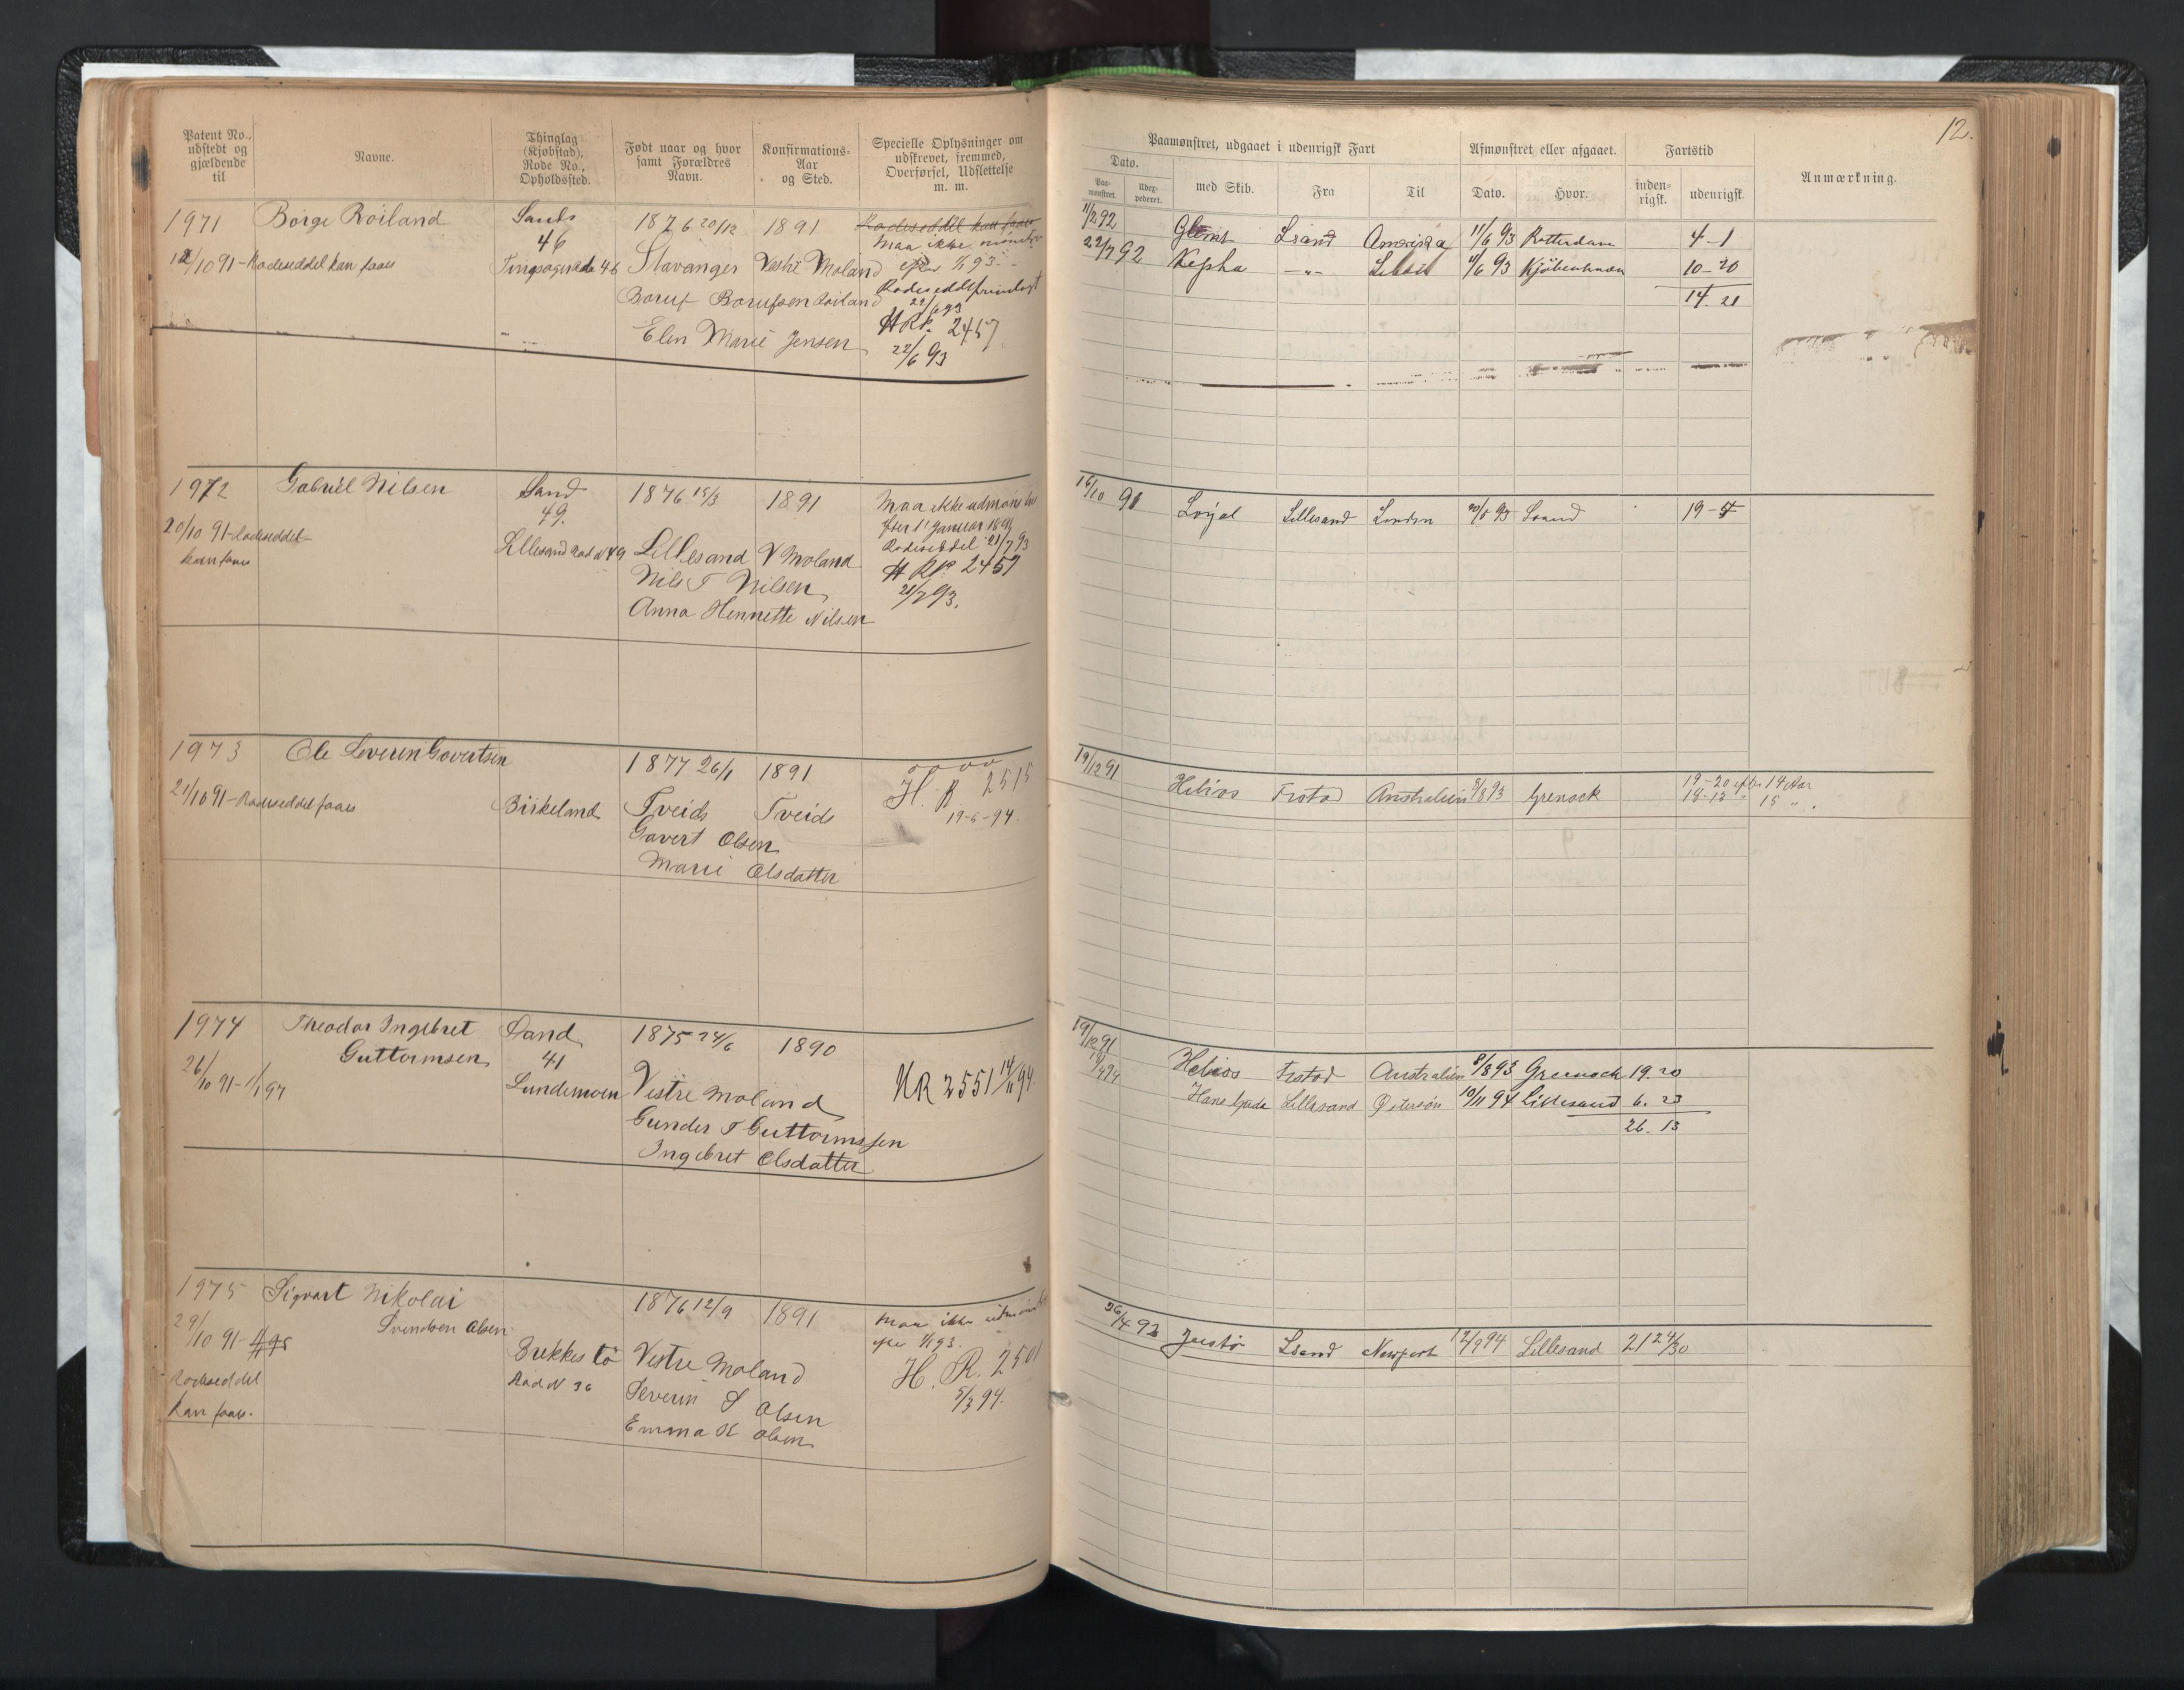 Patent No., udstedt og gjældende til
Navne.
Thinglag (Kjøbstad), Rode No., Opholdssted.
Født naar og hvor samt Forældres Navn.
Konfirmations-Aar og Sted.
Specielle Oplysninger om udskrevet, fremmed, Overførsel, Udslettelse m. m.
1971 Börge Röiland Sands 1876 20/12 1891 Rodeseddel kan faaes
46 Maa ikke mönstre
12/10 91 - Rodeseddel kan faaes 46 Stavanger Vestre Moland efter 1/1 93
Boruf Borufsen Röiland
22/6 93
Elen Marie Jensen H RP. 2457
22/6 93
1972 Gabriel Nilsen Sand 1876 15/3 1891 Maa ikke udmönstres
49. efter 1' Januar 1893
20/10 91 - Rodeseddel Lillesand Rod N 49 Lillesand V Moland Rodeseddel 21/7 93
kan faaes Nils T Nilsen H RP. 2457
Anna Hennette Nilsen 21/7 93.
1973 Ole Severin Govertsen 1877 26/1 1891
H. R 2515
21/10 91 - Rodeseddel faaes Birkeland Tveids Tveids 19-6-94.
Govert Olsen
Marie Olsdatter
1974 Theodor Ingebret Sand 1875 24/6 1890
Guttormsen 41
26/10 91 - 1/1 97 Lundemoen Vestre Moland HR 2551 14/11 94
Gunder T Guttormssen
Ingebret Olsdatter
1975 Sigvart Nikolai 1876 12/9 1891 Maa ikke udmönstres
Svendsen Olsen efter 1/1 93.
29/10 91 - Brekkestö Vestre Moland H. R. 2501
Rodeseddel Rod N 36 Severin S Olsen 5/3 94.
kan faaes. Emma K Olsen
12.
Paamønstret, udgaaet i udenrigsk Fart
Afmønstret eller afgaaet.
Fartstid
Anmærkning.
Dato.
Paa-mønstret.
Udex-pederet.
med Skib.
Fra
Til
Dato.
Hvor.
inden-rigsk.
udenrigsk.
11/2 92 Glimt Lsand Amerika 11/6 93 Rotterdam 4-1
22/7 92 Kepha -"- 11/6 93 Kjöbenhavn 10-20
14-21
16/10 91 Loyal Lillesand London 20/5 93 Lsand 19-4
19/12 91 Helios Frstad Australien 8/8 93 Grenock 19-20 efter 14 Aar
18-13 " 15 " .
19/12 91 Helios Frstad Australien 8/8 93 Greenock 19. 20
Hans Gude Lillesand Østersön 10/11 94 Lillesand 6. 23
26. 13
26/4 92 Justö Lsand Newport 12/2 94 Lillesand 21 24/30